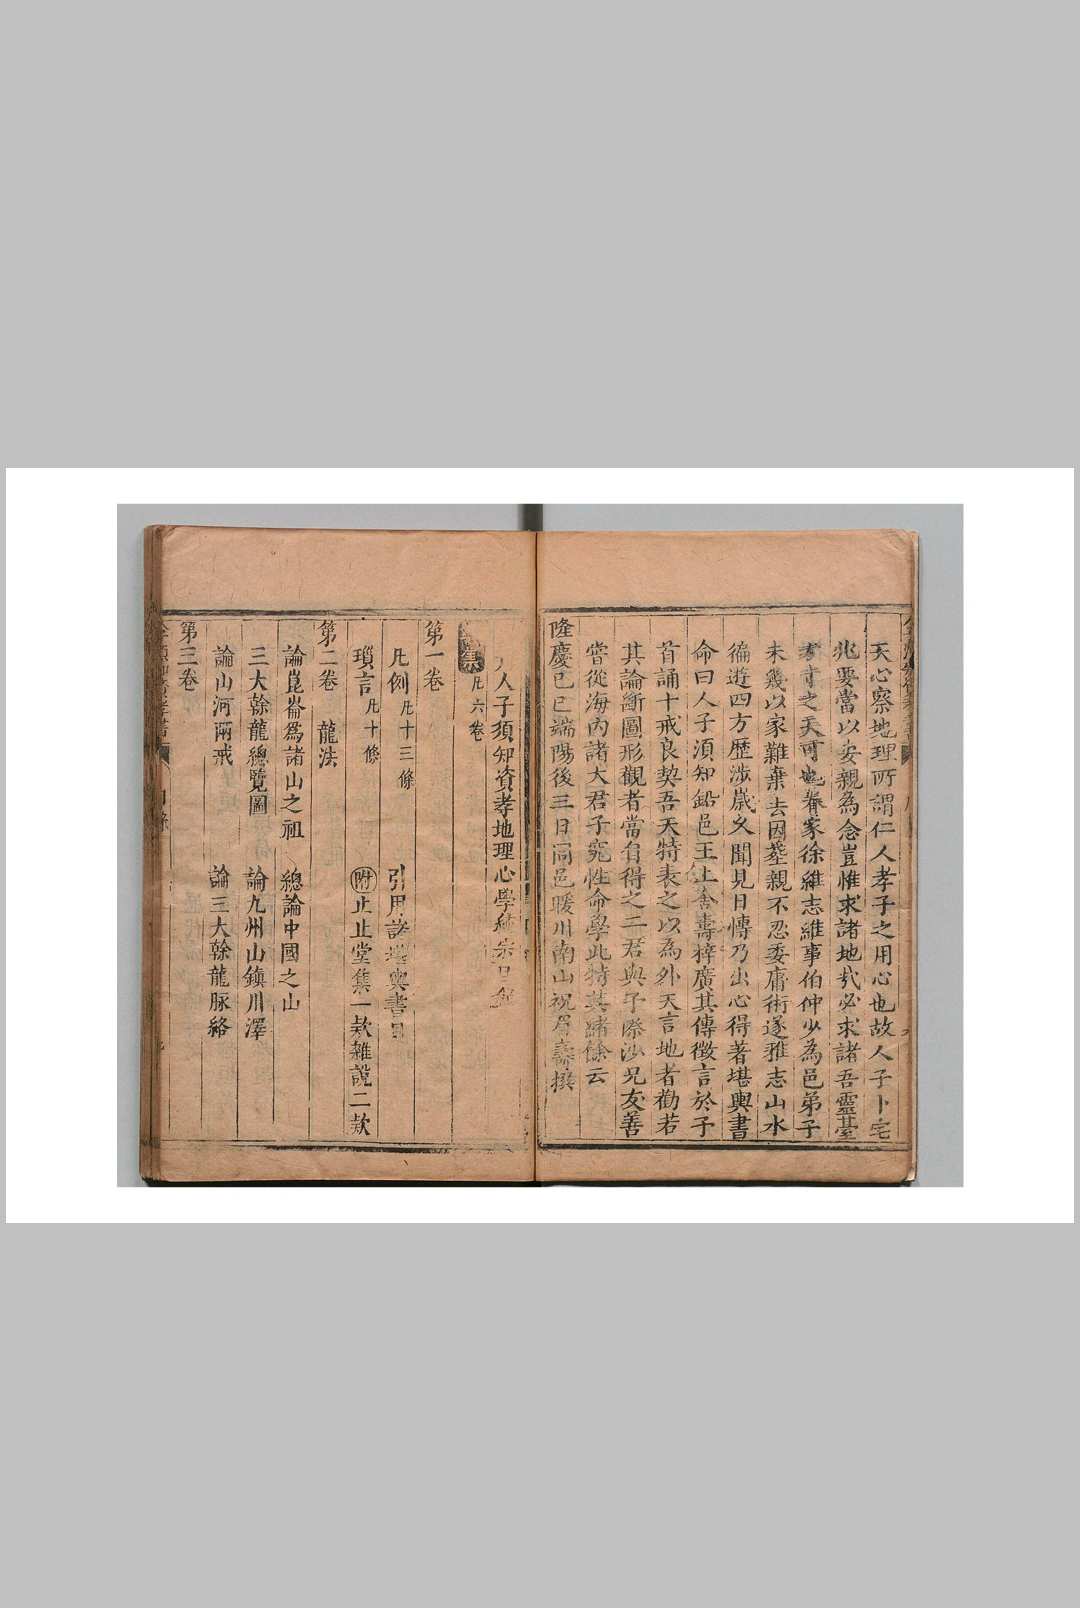 天心察地理所謂仁人孝子之用心也故人子卜宅
兆要當以安親為念豈惟求諸地哉必求諸吾靈臺
之天可也眷家徐維志維事伯仲少為邑弟子
未幾以家難棄去因塟親不忍委庸術遂雅志山水
徧遊四方歷涉歲久聞見日博乃出心得著堪輿書
命曰人子須知鉛邑王止菴壽梓廣其傳徵言於予
首誦十戒良契吾天特表之以為外天言地者勸若
其論斷圖形觀者當自得之二君與予際沙兄友善
嘗從海內諸大君子究性命學此特其緒餘云
隆慶己巳端陽後三日同邑暖川南山祝眉壽撰
人子須知資孝地理心學統宗目錄
凡六卷
第一卷
凡例凡十三條 引用諸堪輿書目
瑣言凡十條 附止止堂集一款雜說二款
第二卷 龍法
論崑崙爲諸山之祖 總論中國之山
三大榦龍總覽圖 論九州山鎮川澤
論山河兩戒 論三大榦龍脉絡
第三卷